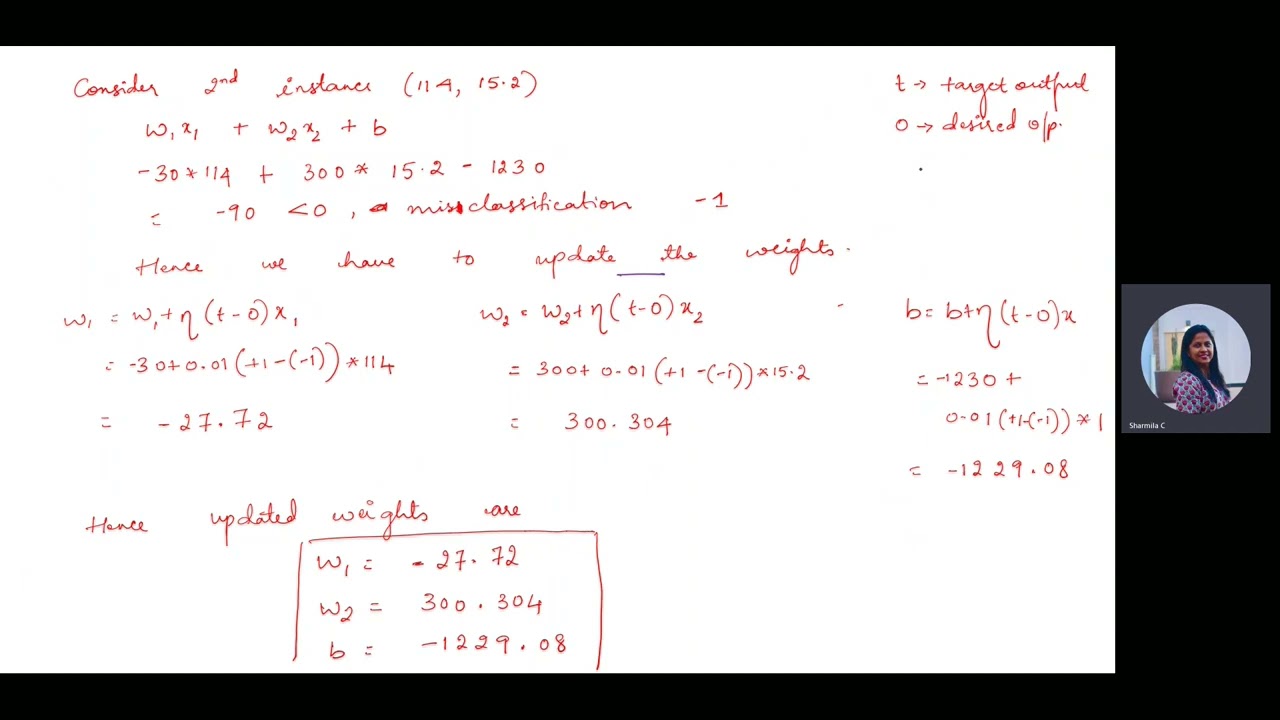 Consider 2nd instance (114, 15.2)
t → target output
w₁x₁ + w₂x₂ + b
o → desired o/p.
-30*114 + 300* 15.2 - 1230
= -90 <0, misclassification -1
Hence we have to update the weights.
w₁ = w₁+η(t-o)x₁
= -30+0.01(+1-(-1))*114
= -27.72
w₂ = w₂+η(t-o)x₂
= 300+0.01(+1-(-1))*15.2
= 300.304
b = b+η(t-o)x
= -1230 +
0.01(+1-(-1))*1
= -1229.08
Hence updated weights are
w₁ = -27.72
w₂ = 300.304
b = -1229.08
Sharmila C